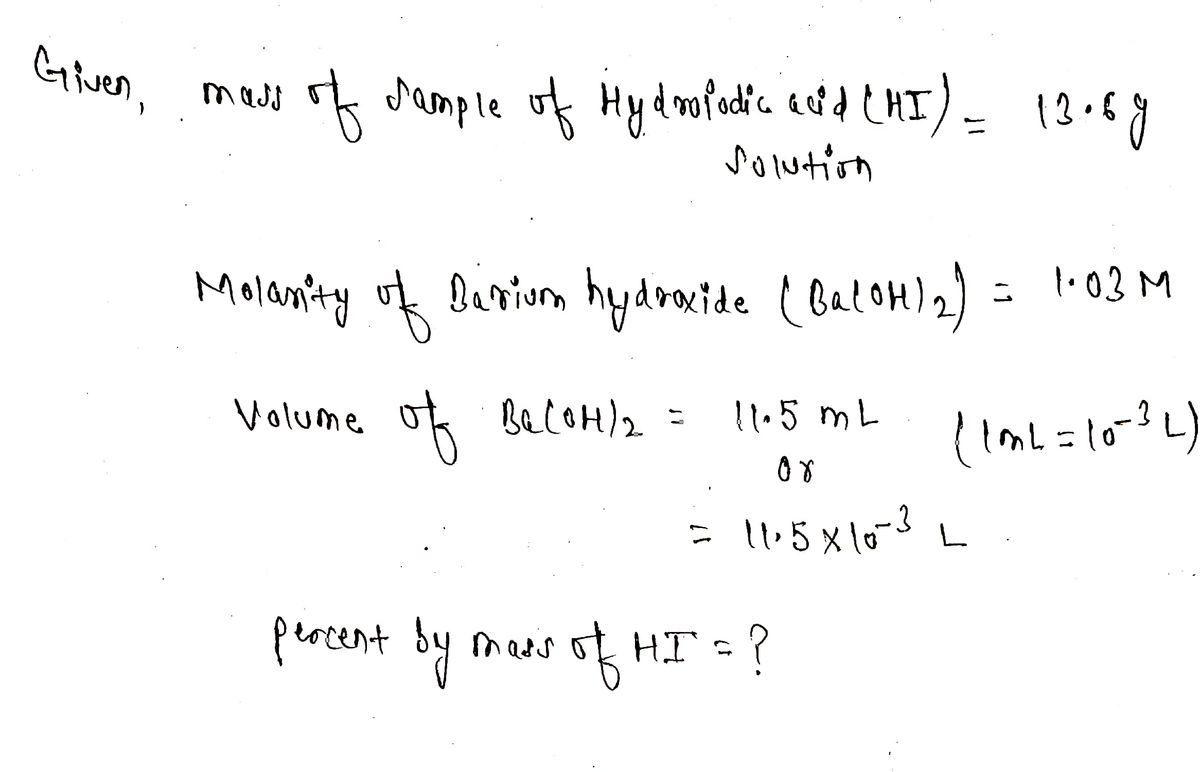 Given, mass of sample of Hydroiodic acid (HI) = 13.6 g
solution
Molarity of Barium hydroxide (Ba(OH)2) = 1.03 M
Volume of Ba(OH)2 = 11.5 mL (1mL = 10⁻³ L)
or
= 11.5 x 10⁻³ L
percent by mass of HI = ?